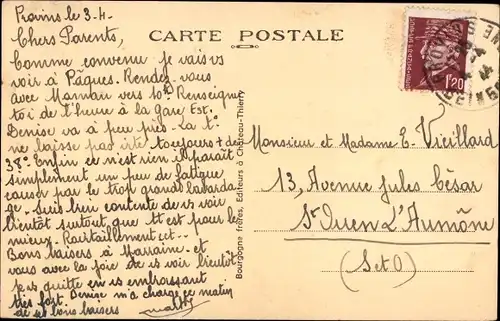 Provins le 3-4
Chers Parents,
Comme convenu je vais vs
voir à Pâques. Rendez-vous
avec Maman vers 10h. Renseignez
toi de l'heure à la gare Est.
Denise va à peu près. La t°
ne baisse pas vite toujours + de
38°. Enfin ce n'est rien il paraît
simplement un peu de fatigue
causer par le trop grand bavardage
. Suis bien contente de vs voir
bientôt surtout que tt est pour le
mieux. Ravitaillement etc..
Bons baisers à Marraine et
vous avec la joie de vs voir bientôt
vs quitte en vs embrassant
très fort. Denise m'a chargé ce matin
de ses bons baisers
CARTE POSTALE
Bourgogne frères, Editeurs à Château-Thierry
1f20
Monsieur et Madame E. Vieillard
13, Avenue Jules César
St Ouen L'Aumône
(S et O)